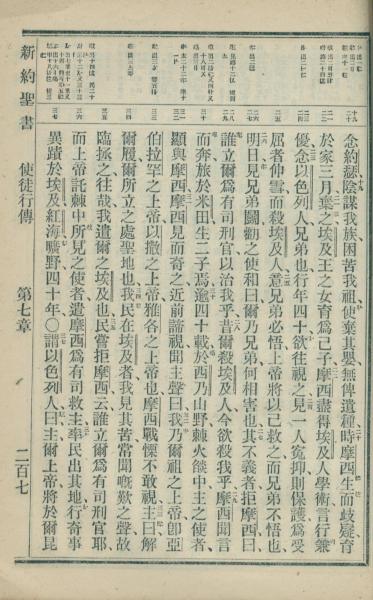 念約瑟陰謀我族困苦我祖使棄其嬰無俾遺種時摩西生而岐嶷育
於家三月棄之埃及王之女育爲己子摩西盡得埃及人學術言行兼
優念以色列人兄弟也行年四十欲往視之見一人寃抑則保護爲受
屈者伸雪而殺埃及人意兄弟必悟上帝將以己救之而兄弟不悟也
明日見兄弟鬬勸之使和曰爾乃兄弟何相害也其不義者拒摩西曰
誰立爾爲有司刑官以治我乎昔爾殺埃及人今欲殺我乎摩西聞言
而奔旅於米田生二子焉逾四十載於西乃山野棘火燄中主之使者
顯與摩西摩西見而奇之近前諦視聞主聲曰我乃爾祖之上帝卽亞
伯拉罕之上帝以撒之上帝雅各之上帝也摩西戰慄不敢視主曰解
爾履爾所立之處聖地也我民在埃及者我見其苦常聞嘅歎之聲故
臨拯之往哉我遣爾之埃及也民嘗拒摩西云誰立爾爲有司刑官耶
而上帝託棘中所見之使者遣摩西爲有司救主率民出其地行奇事
異蹟於埃及紅海曠野四十年○謂以色列人曰主爾上帝將於爾昆
新約聖書 使徒行傳 第七章 二百七